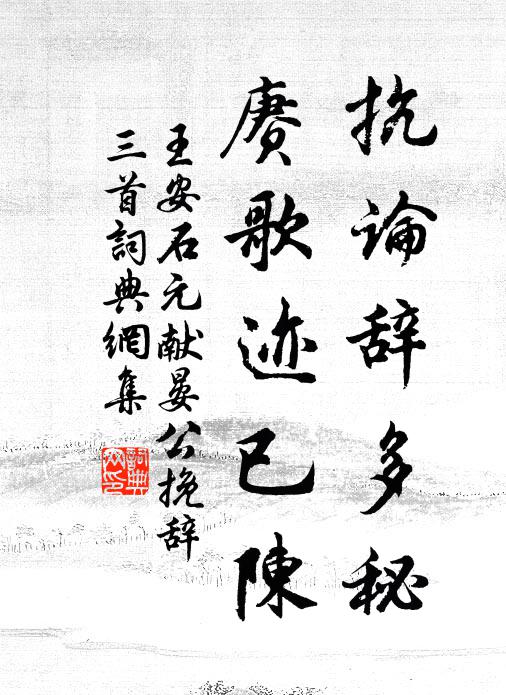 抗論辞多秘
赓歌迹已陳
王安石元献晏公挽辞
三首詞典網集
詞典網印